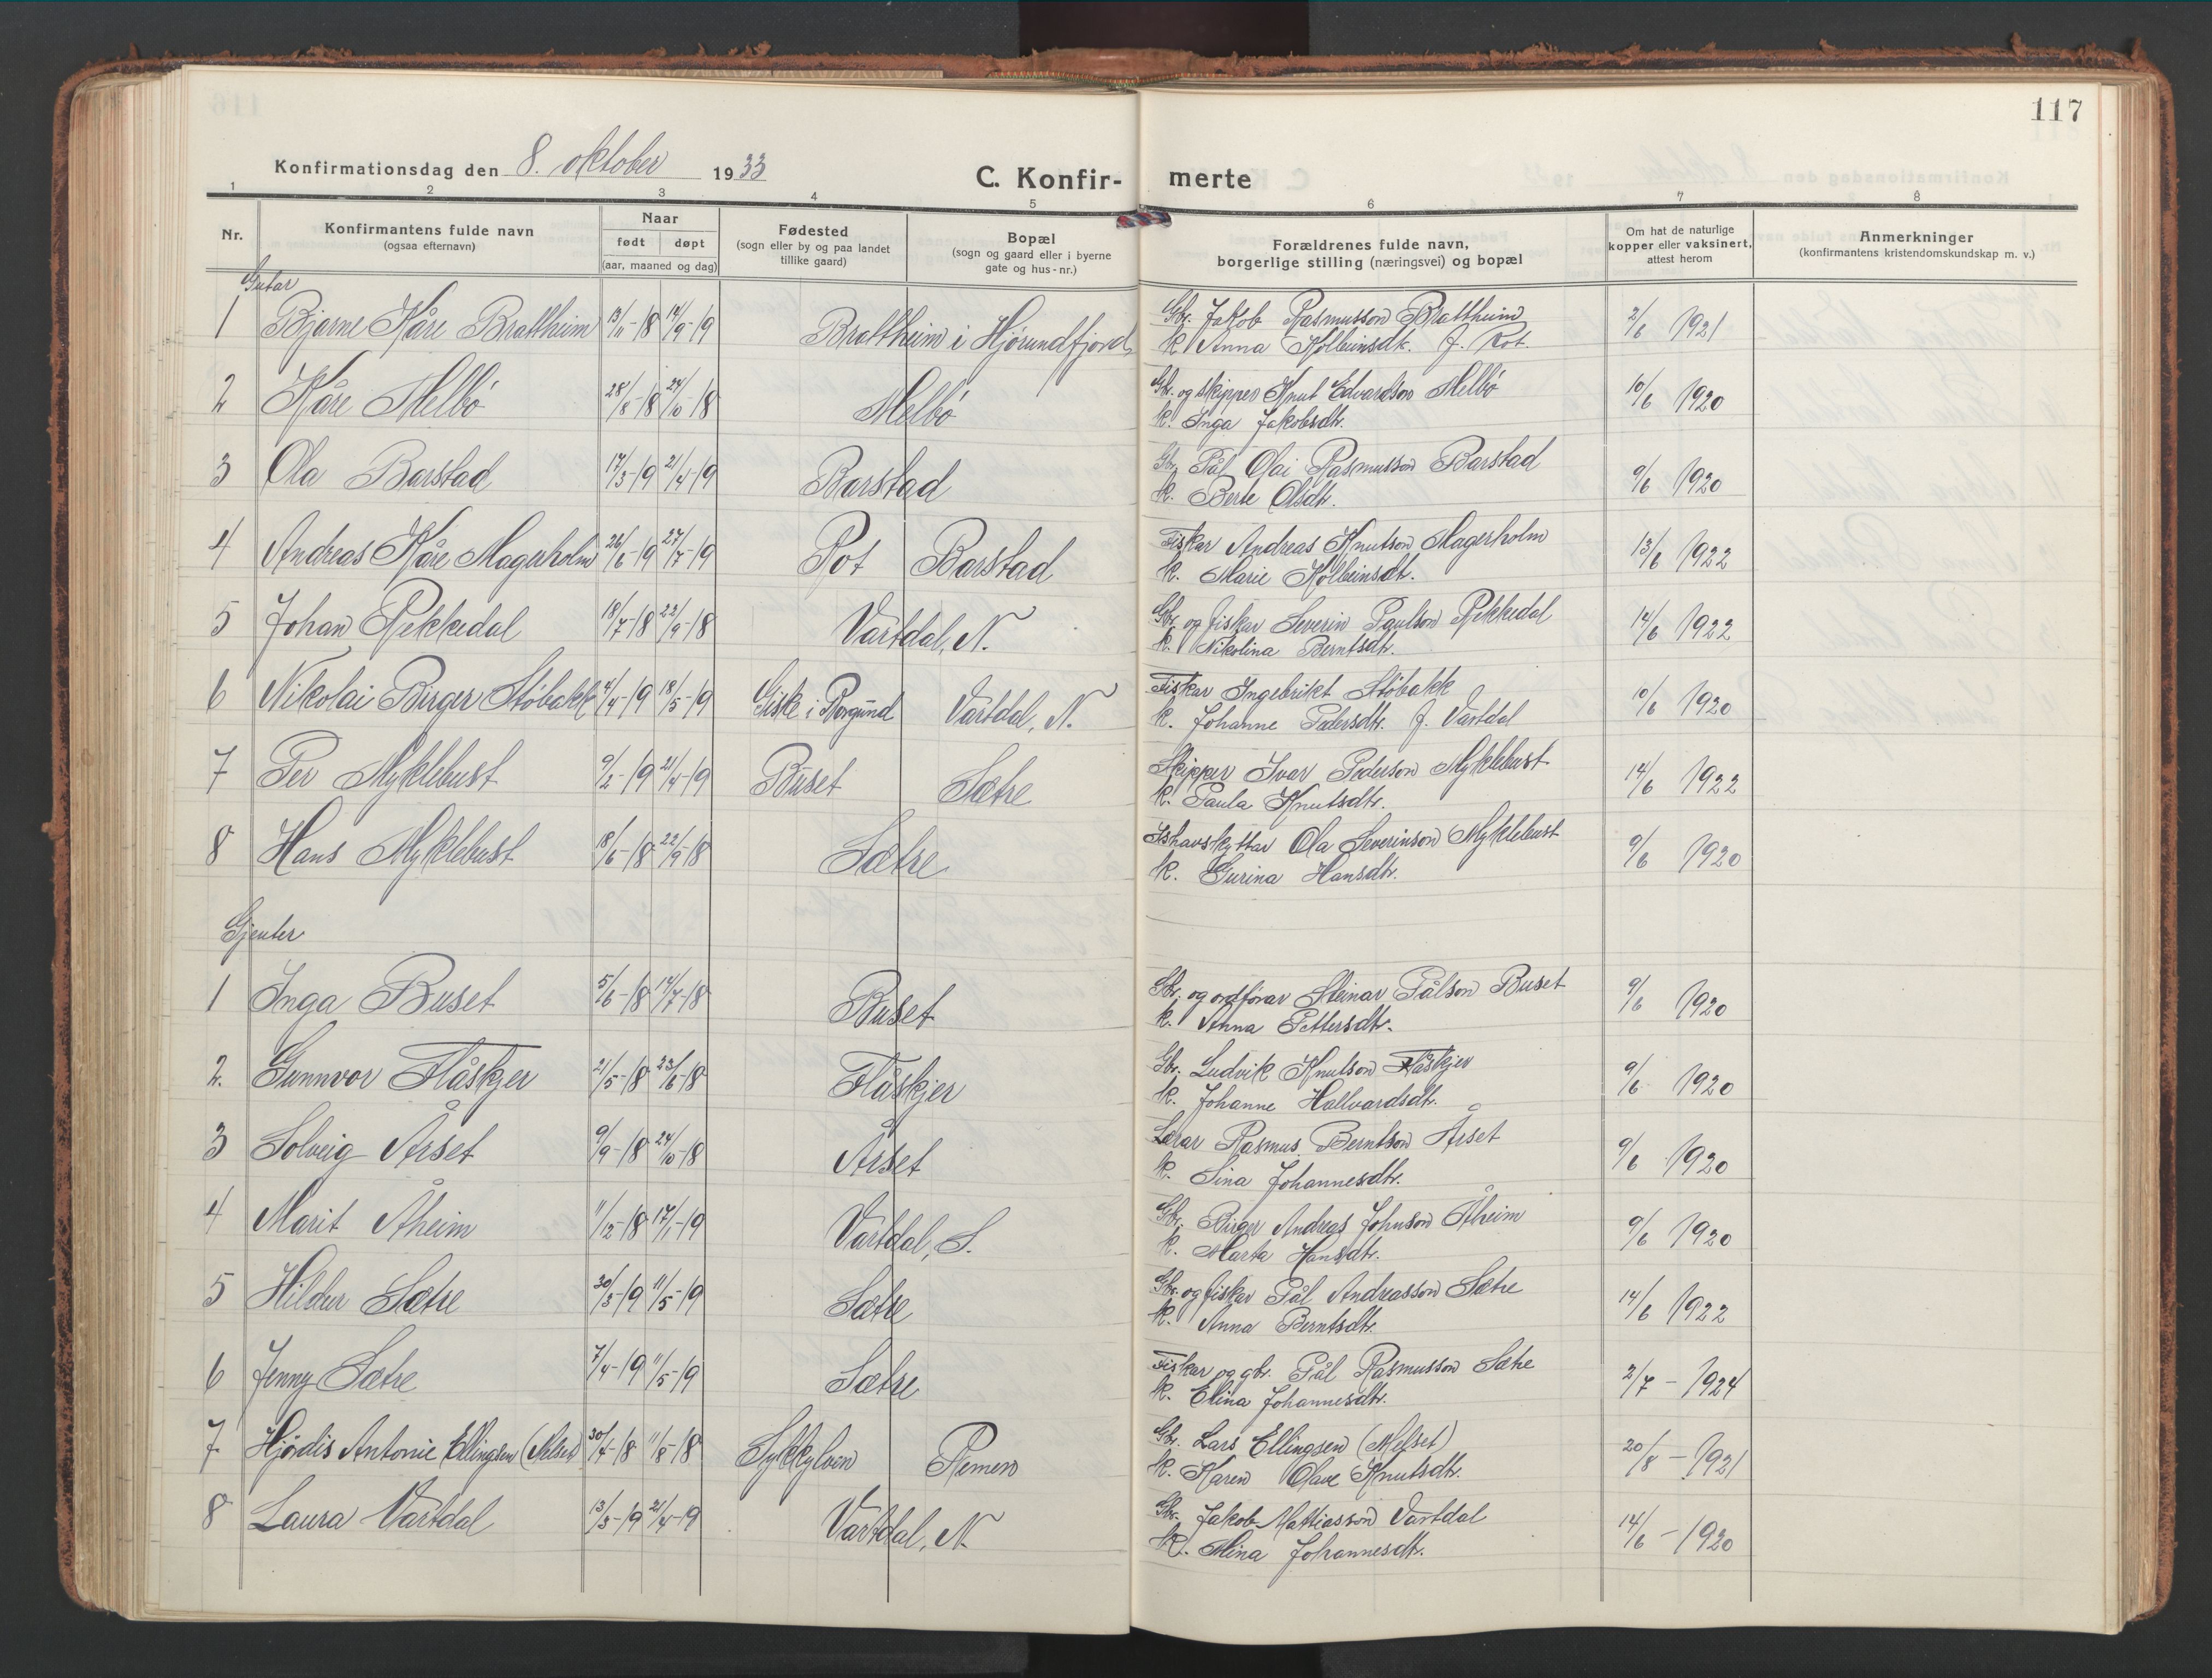 117
Konfirmationsdag den 8. oktober 1933
C. Konfir- merte
1 2 3 4 5 6 7 8
Nr.
Konfirmantens fulde navn
(ogsaa efternavn)
Naar
født døpt
(aar, maaned og dag)
Fødested
(sogn eller by og paa landet
tillike gaard)
Bopæl
(sogn og gaard eller i byerne
gate og hus-nr.)
Forældrenes fulde navn,
borgerlige stilling (næringsvei) og bopæl
Om hat de naturlige
kopper eller vaksinert,
attest herom
Anmerkninger
(konfirmantens kristendomskundskap m. v.)
Gutar
1 Bjarne Kåre Brattheim 13/11-18 14/9-19 Brattheim i Hjørundfjord Gbr. Jakob Rasmusson Brattheim 2/6 1921
k. Anna Kolbeinsdt. f. Rot.
2 Kåre Melbö 28/8-18 24/10-18 Melbö Gbr. og skipper Knut Edvardson Melbö 10/6 1920
k. Inga Jakobsdtr.
3 Ola Barstad 17/3-19 21/4-19 Barstad Gbr. Pål Olai Rasmusson Barstad 9/6 1920
k. Berte Olsdtr.
4 Andreas Kåre Magerholm 26/6-19 27/7-19 Rot Barstad Fiskar Andreas Knutson Magerholm 13/6 1922
k. Marie Kolbeinsdt.
5 Johan Rekkedal 18/7-18 22/9-18 Vartdal, N. Gbr. og fiskar Severin Paulson Rekkedal 14/6 1922
k. Nikolina Berntsdtr.
6 Nikolai Birger Støbakk 4/4-19 18/5-19 Giske i Borgund Vartdal, N. Fiskar Ingebrikt Støbakk 10/6 1920
k. Johanne Pedersdtr. f. Vartdal
7 Per Myklebust 9/2-19 21/4-19 Buset Sætre Skipper Ivar Pederson Myklebust 14/6 1922
k. Paula Knutsdtr.
8 Hans Myklebust 18/6-18 22/9-18 Sætre Ishavskyttar Ola Severinson Myklebust 9/6 1920
k. Gurina Hansdtr.
Gjenter
1 Inga Buset 5/6-18 14/7-18 Buset Gbr. og ordförar Steinar Pålson Buset 9/6 1920
k. Anna Pettersdtr.
2. Gunnvor Flåskjer 21/5-18 23/6-18 Flåskjer Gbr. Ludvik Knutson Flåskjer 9/6 1920
k. Johanne Hallvardsdt.
3 Solveig Årset 9/9-18 24/10-18 Årset Lærar Rasmus Berntson Årset 9/6 1920
k. Sina Johannesdtr.
4 Marit Åheim 11/12-18 17/1-19 Vartdal, S. Gbr. Birger Andreas Johnson Åheim 9/6 1920
k. Marta Hansdtr.
5 Hildur Sætre 30/3-19 11/5-19 Sætre Gbr. og fiskar Pål Andreasson Sætre 14/6 1922
k. Anna Berntsdtr.
6 Jenny Sætre 7/4-19 11/5-19 Sætre Fiskar og gbr. Pål Rasmusson Sætre 2/7 - 1924
k. Elina Johannesdtr.
7. Hjödis Antonie Ellingsen (Melset) 30/4-18 11/8-18 Sykkylven Remen Gbr. Lars Ellingsen (Melset) 20/8 - 1921
k. Karen Olave Knutsdtr.
8 Laura Vartdal 13/3-19 21/4-19 Vartdal, N. Gbr. Jakob Mattiasson Vartdal 14/6 - 1920
k. Mina Johannesdt.